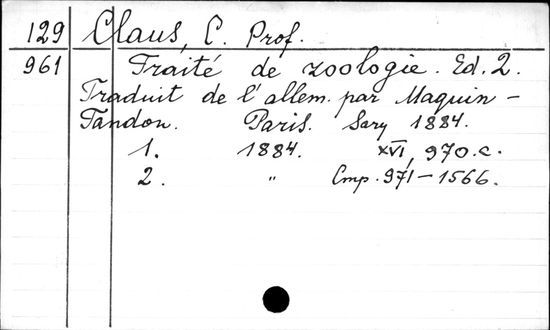 129 Claus, C. Prof.
961 Traité de zoologie. Ed. 2.
Traduit de l'allem. par Maquin-
Tandon. Paris. Savy 1884.
1. 1884. XVI, 970.c.
2. " Cmp. 971-1566.